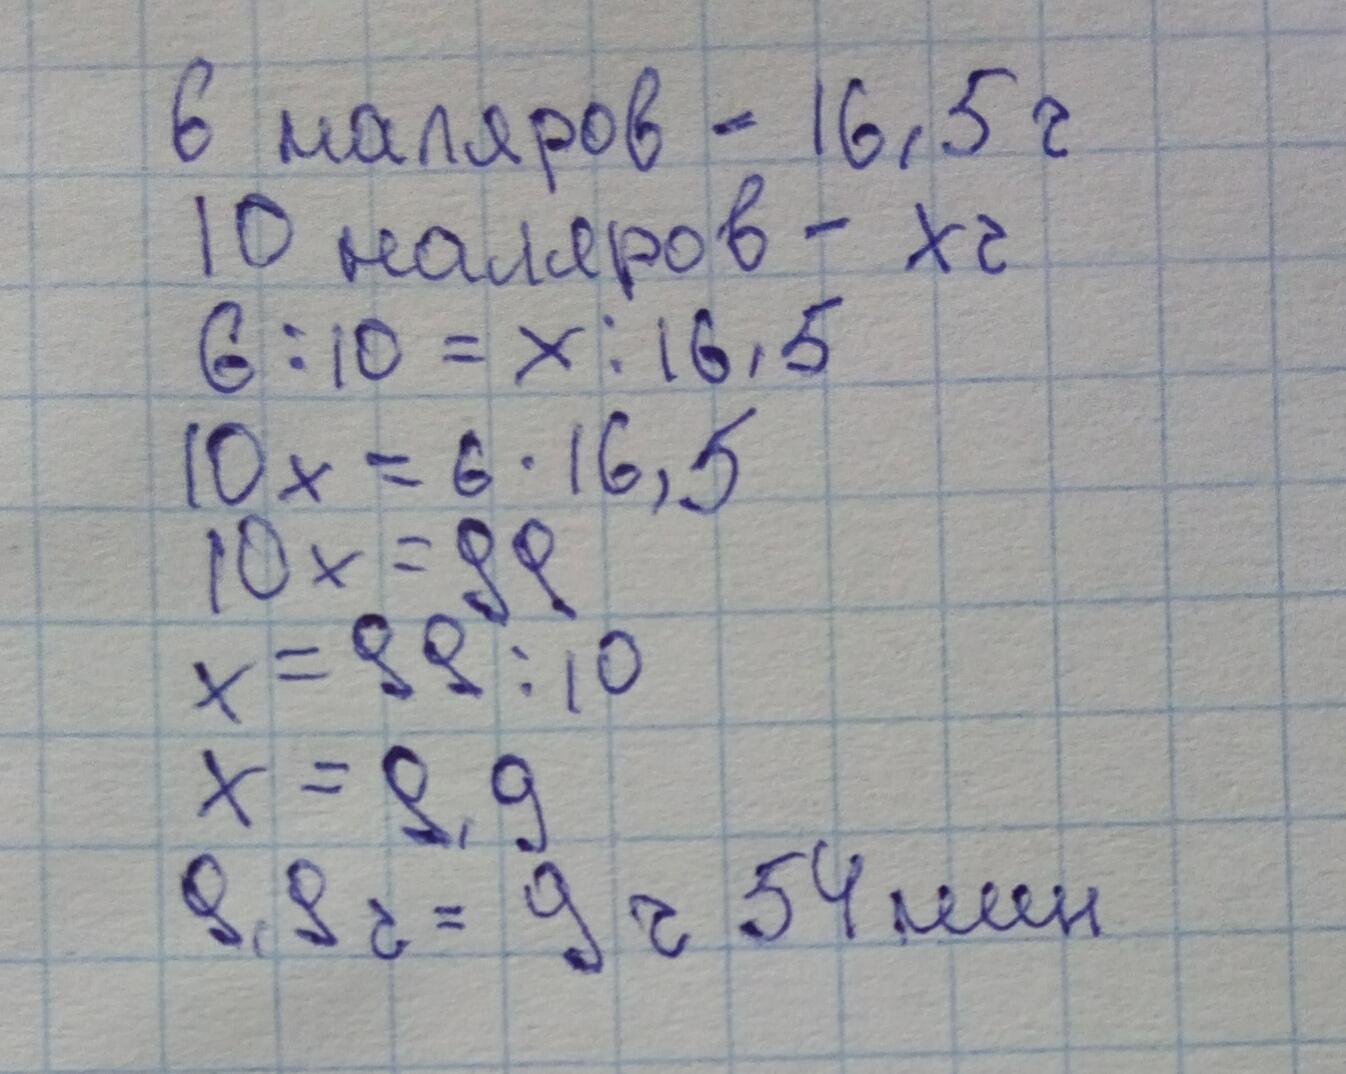 6 маляров - 16,5 ч
10 маляров - х ч
6 : 10 = х : 16,5
10х = 6 · 16,5
10х = 99
х = 99 : 10
х = 9,9
9,9 ч = 9 ч 54 мин